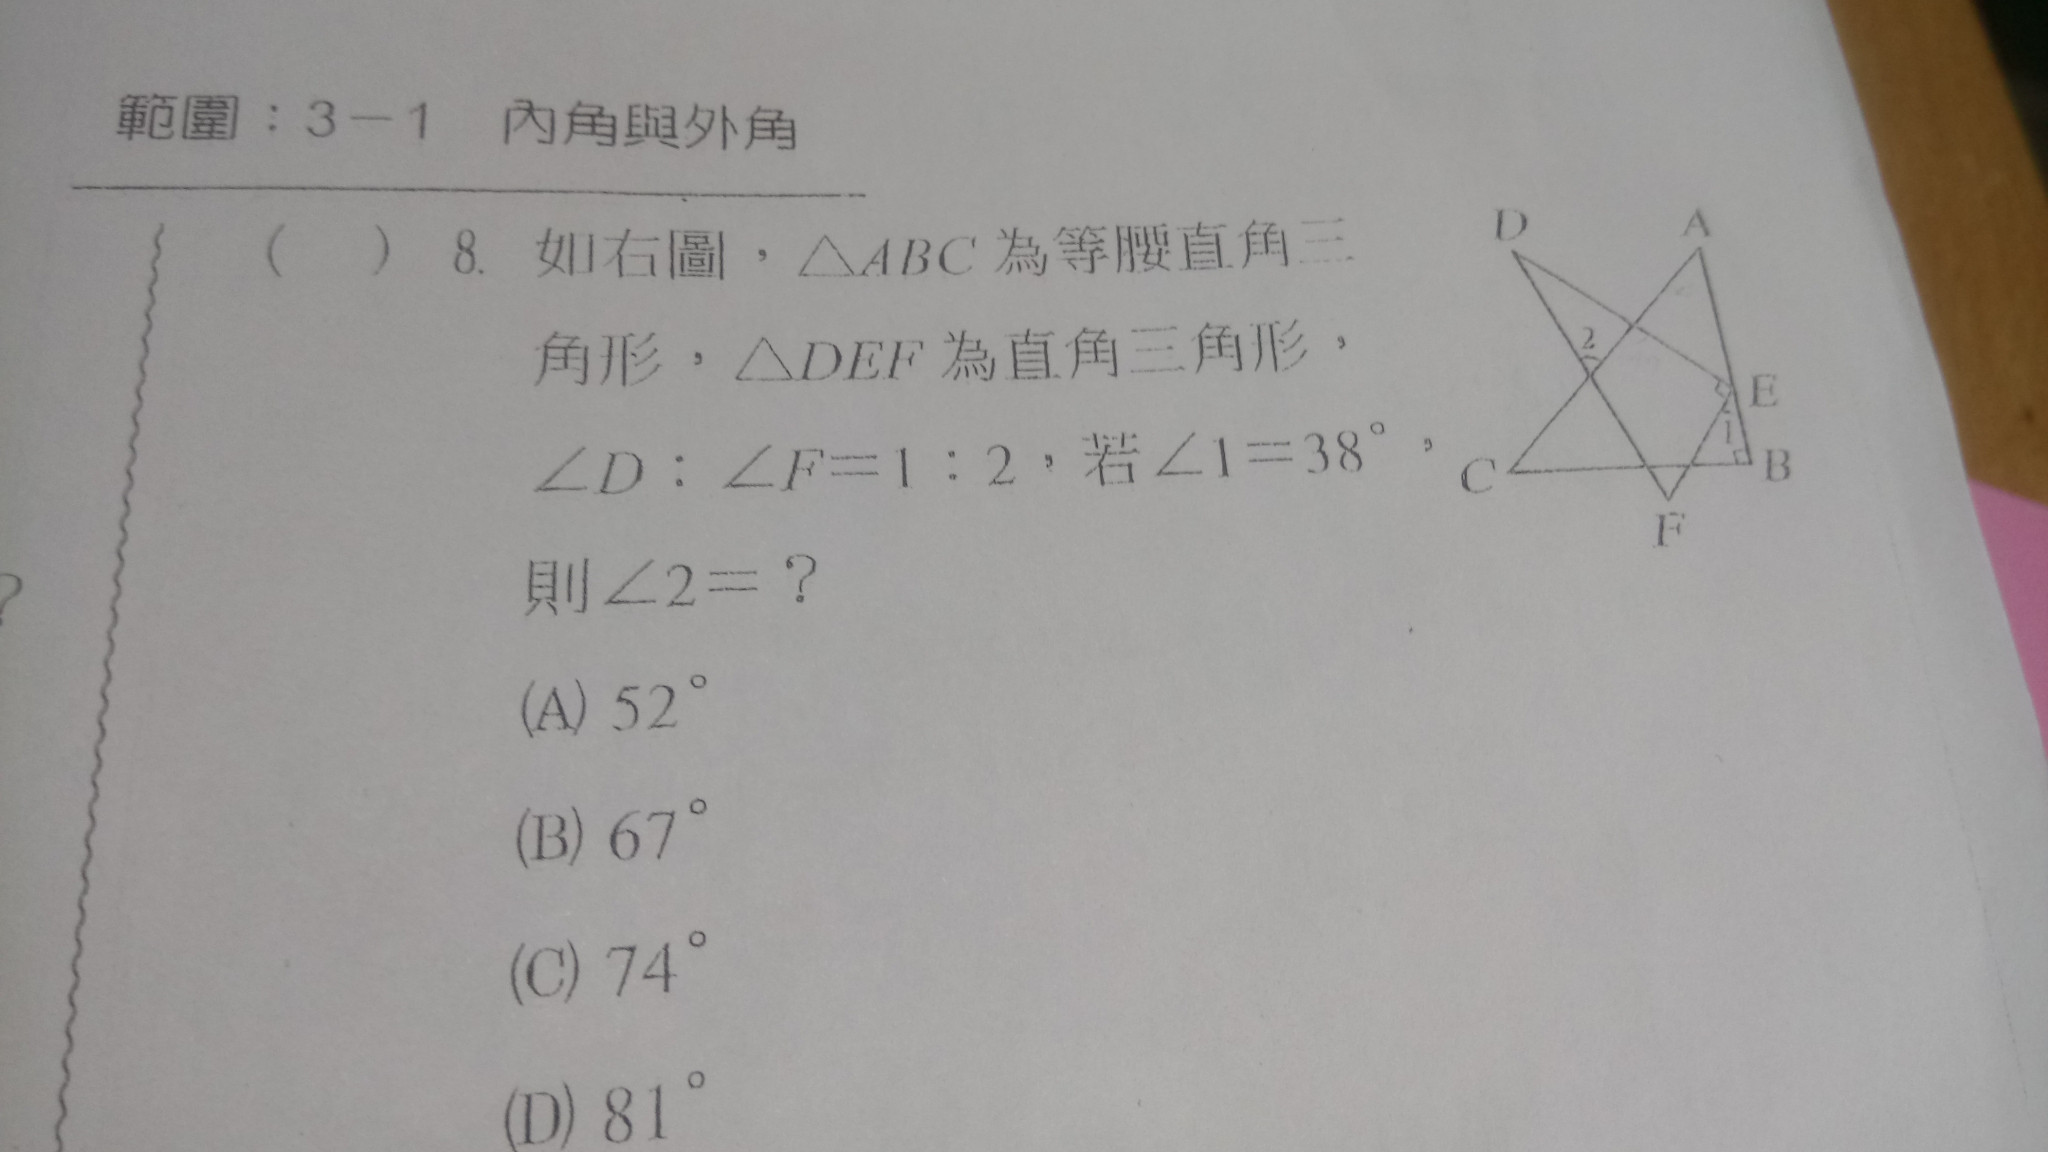 範圍：3－1 內角與外角
(　) 8. 如右圖，△ABC 為等腰直角三
角形，△DEF 為直角三角形，
∠D：∠F＝1：2，若∠1＝38°，
則∠2＝？
(A) 52°
(B) 67°
(C) 74°
(D) 81°
D
A
2
E
1
C
B
F
?